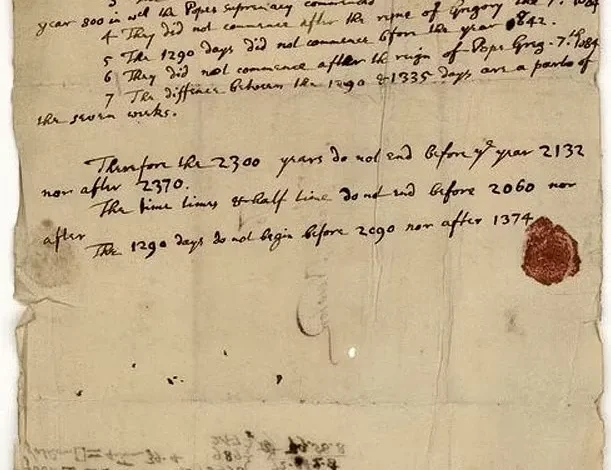 year 800 in wch the Popes supremacy commenced
4 They did not commence after the reigne of Gregory the 7th. 1084
5 The 1290 days did not commence bfore the year 842.
6 They did not commence after the reign of Pope Greg. 7th 1084
7 The diffence between the 1290 & 1335 days are a parts of
the seven weeks.
Therefore the 2300 years do not end before ye year 2132
nor after 2370.
The time times & half time do not end before 2060 nor
after
The 1290 days do not begin before 2090 nor after 1374